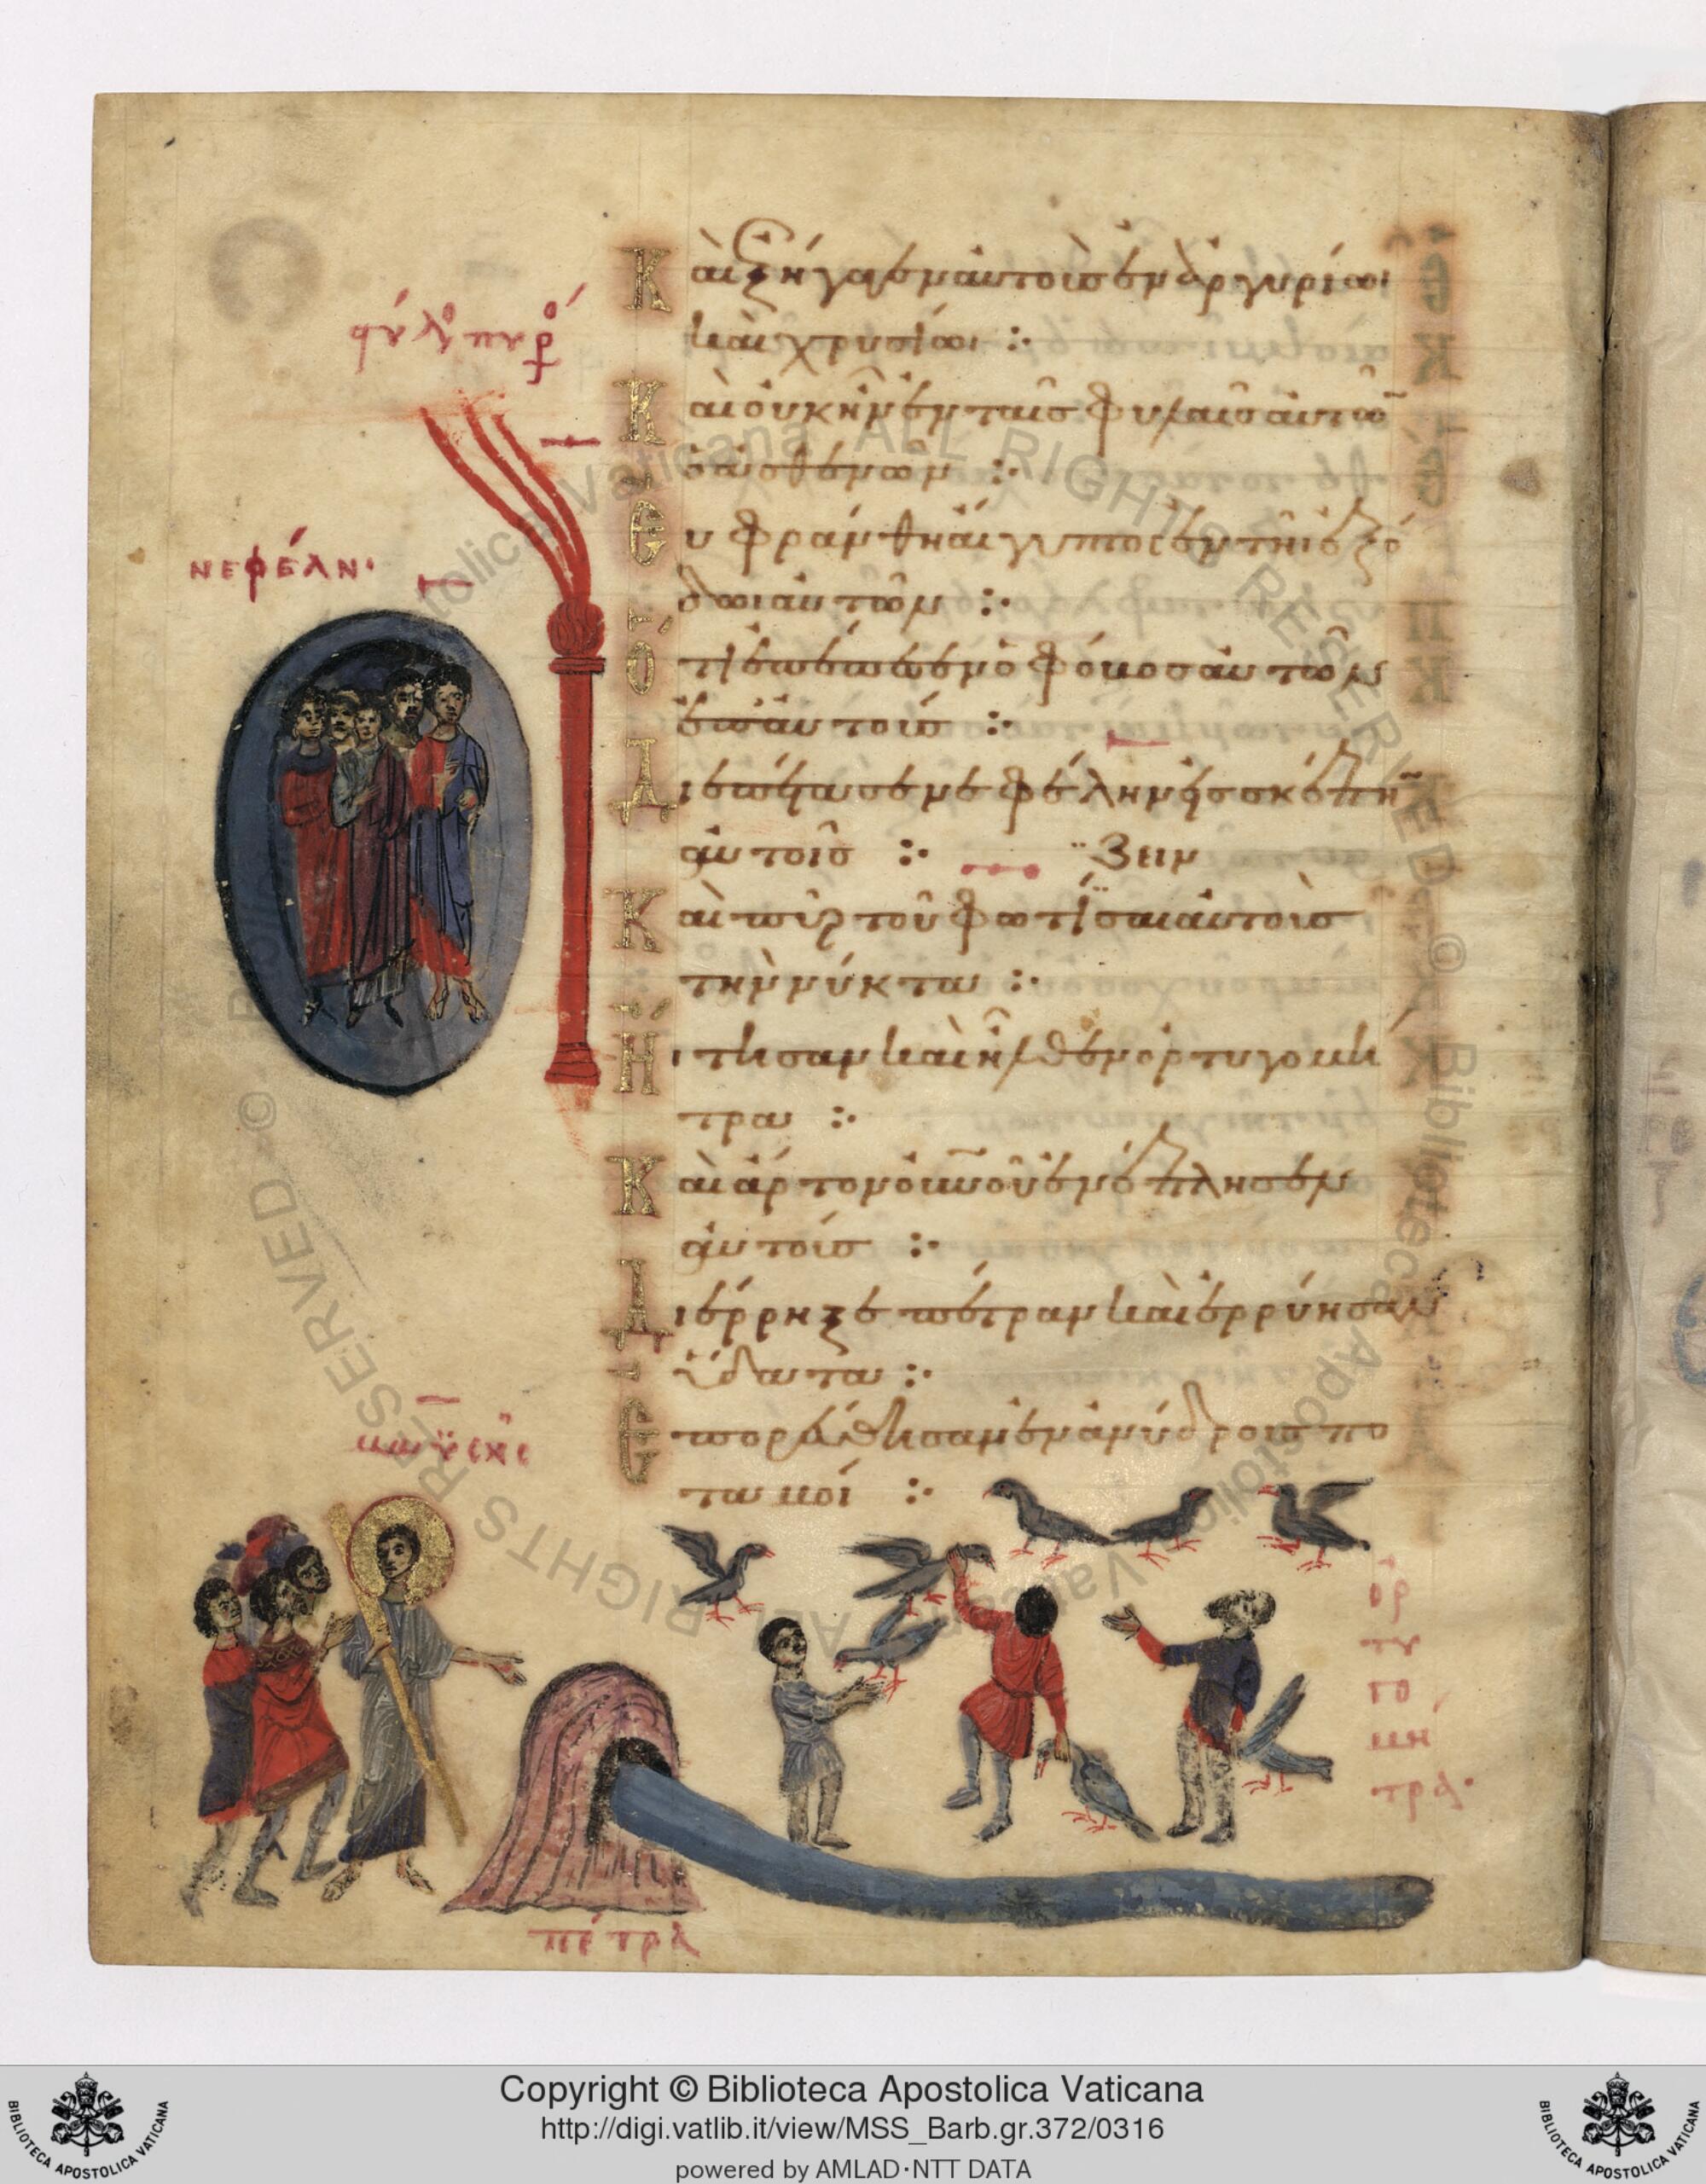 Καὶ ἐξήγαγεν αὐτοὺς ἐν ἀργυρίωι
καὶ χρυσίωι :·
Καὶ οὐκ ἦν ἐν ταῖς φυλαῖς αὐτῶ
ὁ ἀσθενῶν :·
Εὐφράνθη αἴγυπτος ἐν τῆι ἐξό
δωι αὐτῶν :·
Ὅτι ἐπέπεσεν ὁ φόβος αὐτῶν
ἐπ' αὐτοὺς :·
Διεπέτασε νεφέλην εἰς σκέπην
αὐτοῖς :·
Καὶ πῦρ τοῦ φωτίσαι αὐτοῖς
τὴν νύκτα :·
Ἤιτησαν καὶ ἦλθεν ὀρτυγομή
τρα :·
Καὶ ἄρτον οὐνοῦ ἐνέπλησεν
αὐτούς :·
Διέρρηξε πέτραν καὶ ἐρρύησαν
ὕδατα :·
Ἐπορεύθησαν ἐν ἀνύδροις πο
ταμοί :·
νεφέλη·
μωϋσῆς
πέτρα
ὀρ
τυ
γο
μή
τρα·
Copyright © Biblioteca Apostolica Vaticana
http://digi.vatlib.it/view/MSS_Barb.gr.372/0316
powered by AMLAD·NTT DATA
BIBLIOTECA APOSTOLICA VATICANA
BIBLIOTECA APOSTOLICA VATICANA